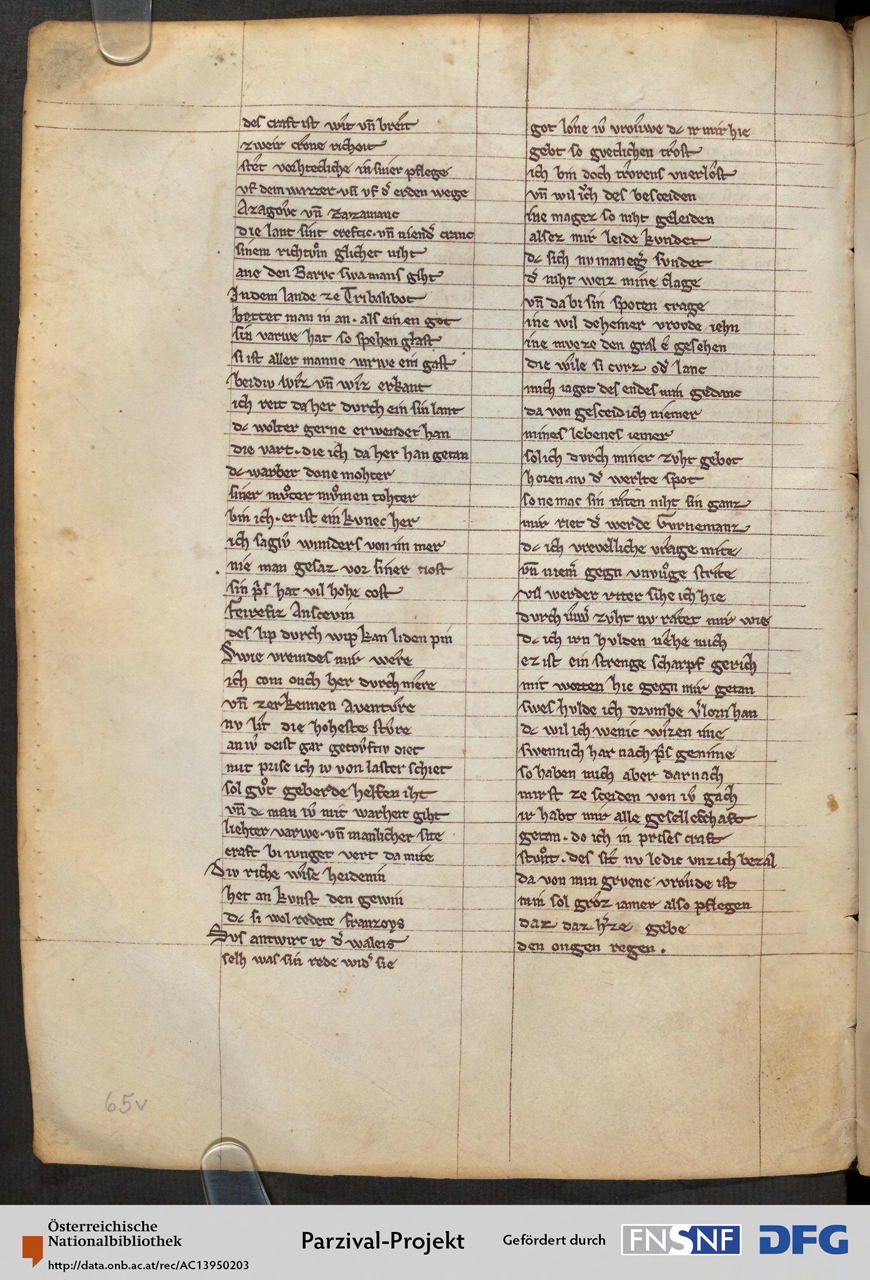 des craft ist wit vn̄ breit
zweir crone richeit
stet vorhtecliche in siner pflege
vf dem wazzer · vn̄ vf dˢ erden wege
Azagovc vn̄ zazamanc
die lant sint creftic · vn̄ niendˢ cranc
sinem richtvͦm glichet niht
ane den Barvc swa mans giht
In dem lande ze Tribalibot
bettet man in an · als einen got
sin varwe hat so spehen glast
si ist aller manne varwe ein gast
beidiv wiz vn̄ wiz erkant
ich reit da her durch ein sin lant
dc wolter gerne erwendet han
die vart · die ich da her han getan
dc warber done mohter
siner mvͦter mvͦmen tohter
bin ich · er ist ein kvnec her
ich sagiv wunders von im mer
nie man gesaz vor siner tiost
sin pˢs hat vil hohe cost
Feirefiz Anscevin
des lip durch wip kan liden pin
Swie vremdes mir were
ich com ouch her durch mere
vn̄ zerkennen Aventvre
nv lit die hoheste stvre
an iv deist gar getovftiv diet
mit prise ich iv von laster schiet
sol gvͦt geberde helfen iht
vn̄ dc man iv mit warheit giht
liehter varwe · vn̄ manlicher site
craft bi iunget vert da mite
Div riche wise heidenin
het an kvnst den gewin
dc si wol redete franzoys
Svs antwirt ir dˢ waleis
selh was sin rede widˢ sie
got lone iv vrouwe dc ir mir hie
gebt so gvetlichen trost
ich bin doch trorens vnerlost
vn̄ wil ivch des besceiden
ine magez so niht geleiden
alsez mir leide kvndet
dc sich nv manegˢ svndet
dˢ niht weiz mine clage
vn̄ da bi sin spoten trage
ine wil deheiner vrovde iehn
ine mveze den gral e gesehen
die wile si cvrz odˢ lanc
mich iaget des endes min gedanc
da von gesceid ich niemer
mines lebenes iemer
sol ich durch miner zvht gebot
horen nv dˢ werlte spot
so ne mac sin raten niht sin ganz
mir riet dˢ werde Gurnemanz
dc ich vrevelliche vrage mite
vn̄ niemˢ gegn vnvuͦge strite
vil werder riter sihe ich hie
durch iuwˢ zvht nv ratet mir wie
dc ich ivrn hvlden nehe mich
ez ist ein strenge scharpf gerich
mit worten hie gegn mir getan
swes hvlde ich drumbe vˢlorn han
dc wil ich wenic wizen ime
swennich har nach pˢs genime
so haben mich aber dar nach
mirst ze sceiden von iv gach
ir habt mir alle geselleschaft
getan · do ich in prises craft
stvͦnt · des sit nv ledic unz ich bezal
da von min grvene vrovde ist
min sol groz iamer also pflegen
daz daz hˢze gebe
den ougen regen ·
65v
Österreichische
Nationalbibliothek
http://data.onb.ac.at/rec/AC13950203
Parzival-Projekt
Gefördert durch
FNSNF
DFG